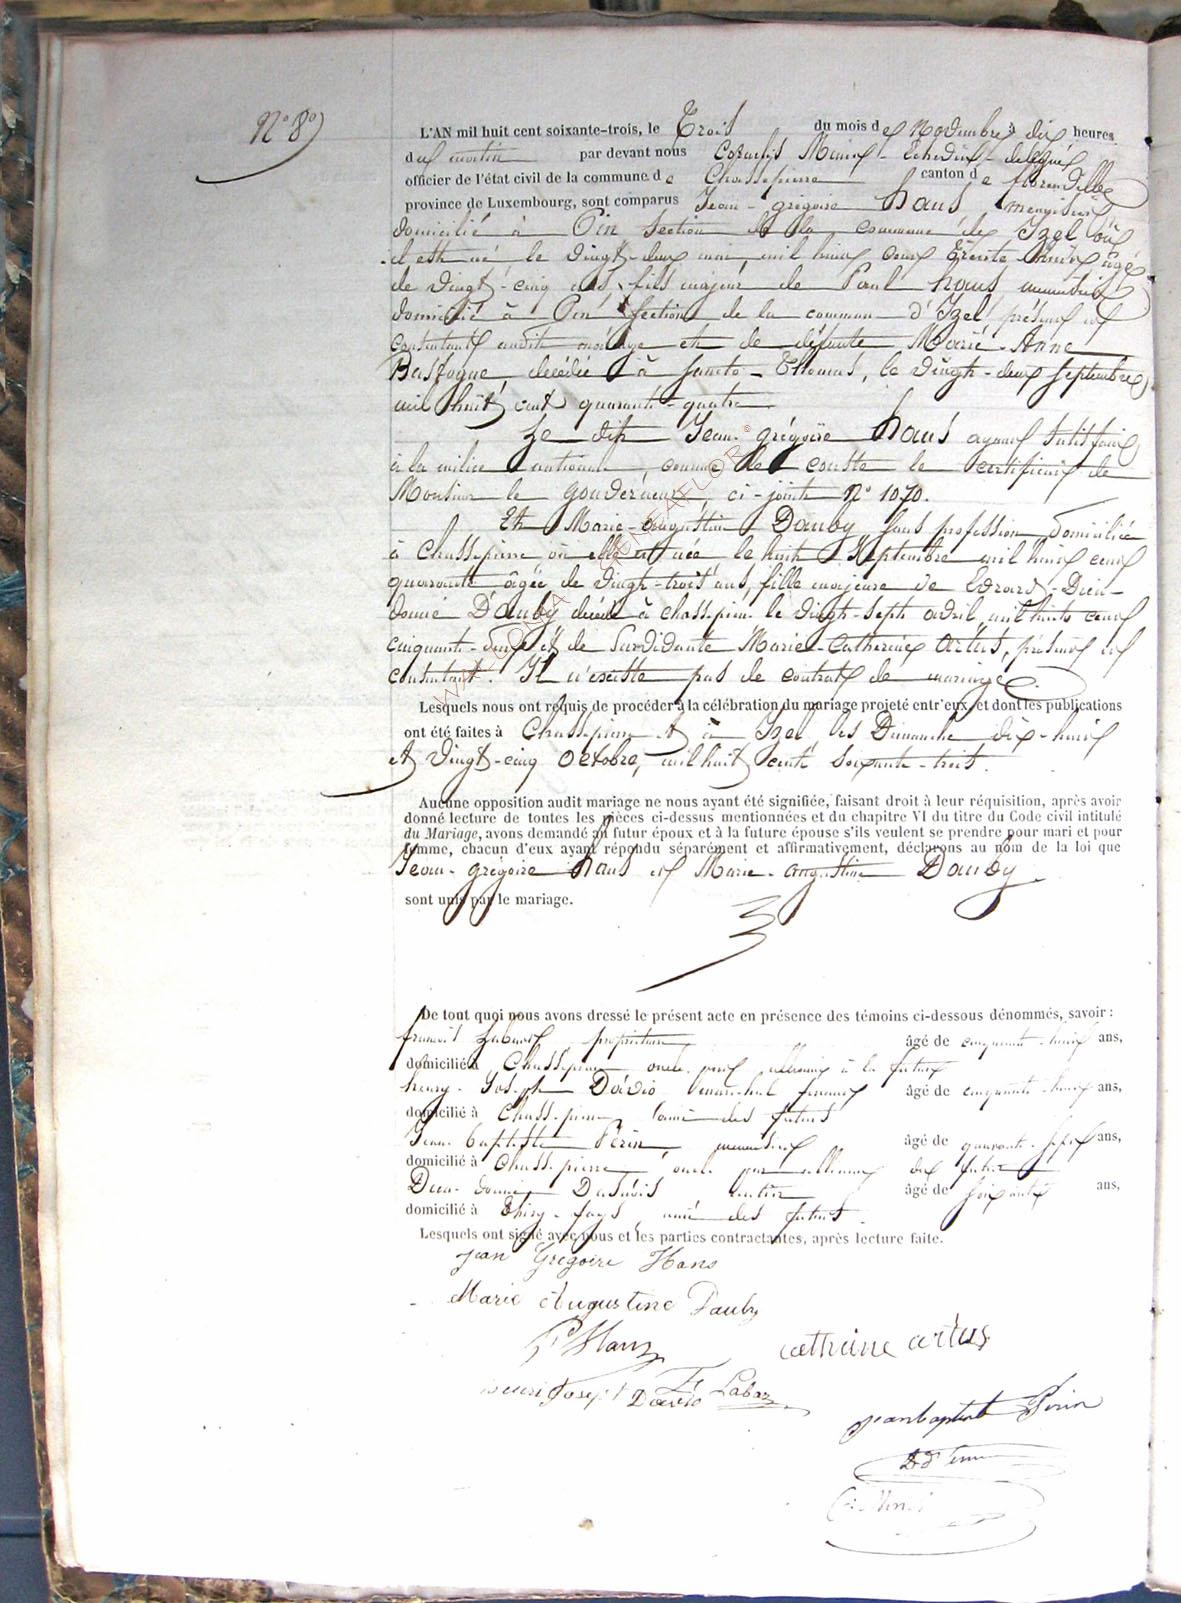 N° 8
L'AN mil huit cent soixante-trois, le Trois du mois de Novembre à dix heures
du matin par devant nous Cornelis Echevin délégué
officier de l'état civil de la commune de Chassepierre canton de florenville
province de Luxembourg, sont comparus Jean-grégoire hans menuisier
domicilié à Pin section de la commune de Izel où
il est né le vingt-deux mai mil huit cent trente-huit âgé
de vingt-cinq ans, fils majeur de Paul hans menuisier
domicilié à Pin section de la commun d'Izel présent et
consentant audit mariage et de défunte Marie-Anne
Bastogne décédée à Thomas, le vingt-deux septembre
mil huit cent quarante-quatre
Le dit Jean-grégoire hans ayant satisfait
à la milice nationale, comme le conste le certificat de
Monsieur le gouverneur, ci-joint N° 1070.
Et Marie-Augustine Dauby sans profession, domiciliée
à Chassepierre où elle est née le huit septembre mil huit cent
quarante âgée de vingt-trois ans, fille majeure de Edouard-Dieu-
donné Dauby décédé à chassepierre le vingt-sept avril mil huit cent
cinquante- et de survivante Marie-Catherine Artus, présente et
consentant. Il n'existe pas de contrat de mariage.
Lesquels nous ont requis de procéder à la célébration du mariage projeté entr'eux, et dont les publications
ont été faites à Chassepierre et à Izel les Dimanche dix-huit
et vingt-cinq Octobre, mil huit cent soixante-trois.
Aucune opposition audit mariage ne nous ayant été signifiée, faisant droit à leur réquisition, après avoir
donné lecture de toutes les pièces ci-dessus mentionnées et du chapitre VI du titre du Code civil intitulé
du Mariage, avons demandé au futur époux et à la future épouse s'ils veulent se prendre pour mari et pour
femme, chacun d'eux ayant répondu séparément et affirmativement, déclarons au nom de la loi que
Jean-grégoire hans et Marie-Augustine Dauby
sont unis par le mariage.
De tout quoi nous avons dressé le présent acte en présence des témoins ci-dessous dénommés, savoir :
françois propriétaire âgé de cinquante-huit ans,
domicilié à Chassepierre oncle par alliance à la future
henry-Joseph David maréchal ferrant âgé de cinquante-huit ans,
domicilié à Chassepierre ami des futurs
Jean baptiste Perin menuisier âgé de quarante-sept ans,
domicilié à Chassepierre, oncle par alliance du futur
Dieu-donné rentier âgé de soixante ans,
domicilié à ami des futurs.
Lesquels ont signé avec nous et les parties contractantes, après lecture faite.
Jean Gregoire Hans
Marie Augustine Dauby
P Hans
catherine artus
henri Joseph David
F Labar
jeanbaptiste Perin
WALLONIA © GENEAFLOR